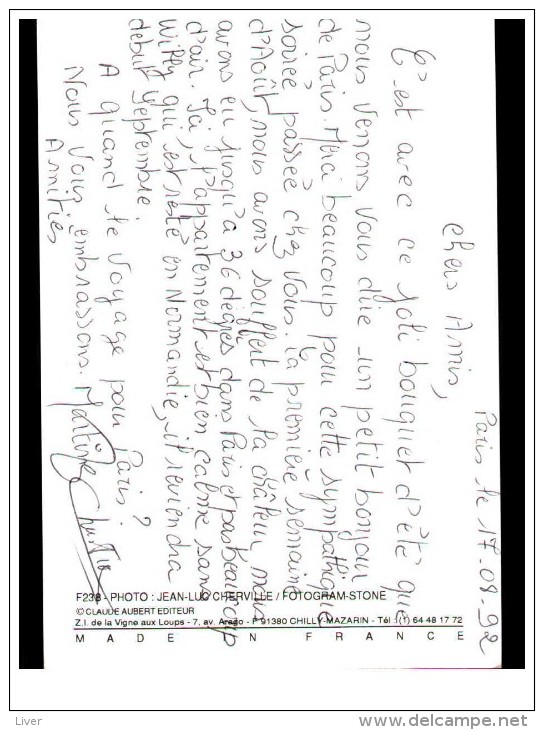 Paris le 17-08-92
Chers Amis,
C'est avec ce joli bouquet d'été que
nous venons vous dire un petit bonjour
de Paris. Merci beaucoup pour cette sympathique
soirée passée chez vous. La première semaine
d'Août, nous avons souffert de la chaleur, nous
avons eu jusqu'à 36 degrés dans Paris et pas beaucoup
d'air. Ici, l'appartement est bien calme sans
Willy qui est resté en Normandie, il reviendra
début Septembre.
A quand le voyage pour Paris ?
Nous vous embrassons.
Amitiés
Martine
F238 - PHOTO : JEAN-LUC CHERVILLE / FOTOGRAM-STONE
© CLAUDE AUBERT EDITEUR
Z.I. de la Vigne aux Loups - 7, av. Arago - F 91380 CHILLY-MAZARIN - Tél : (1) 64 48 17 72
MADE IN FRANCE
Liver
www.delcampe.net